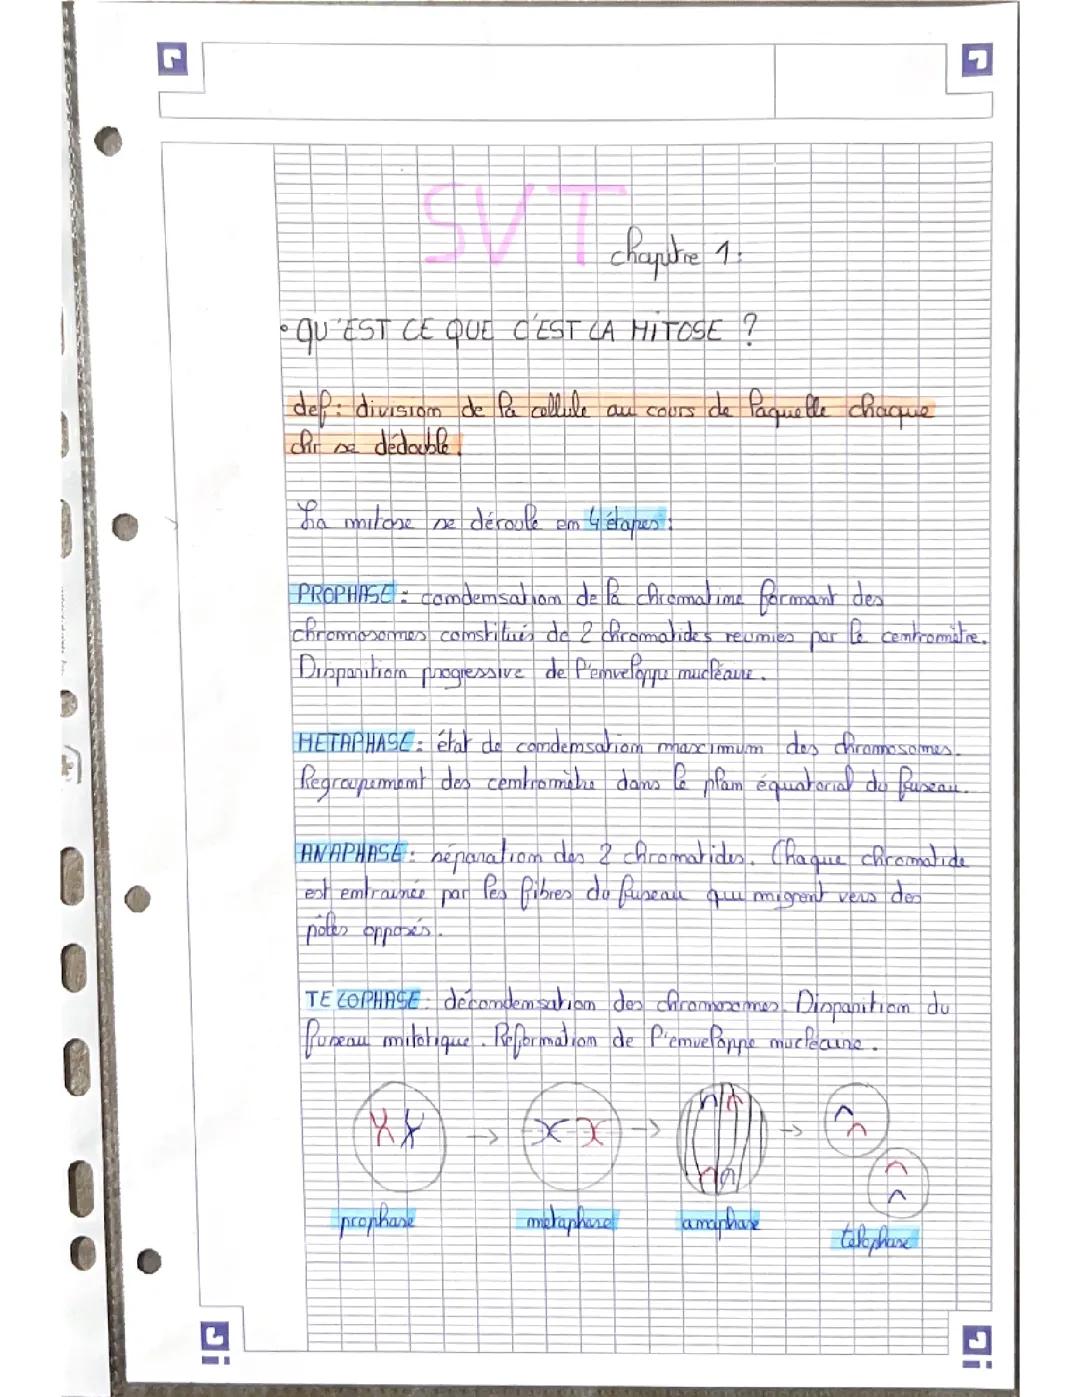 SVT
chapitre 1:
• QU'EST CE QUE C'EST LA MITOSE ?
def: division de la cellule au cours de laquelle chaque
chr se dédouble.
La mitose se déroule en 4 étapes:
PROPHASE: condensation de la chromatine formant des
chromosomes constitués de 2 chromatides reunies par le centromètre.
Disparition progressive de l'enveloppe nucléaire.
METAPHASE: état de condensation maximum des chromosomes.
Regroupement des centromètre dans le plan équatorial du fuseau.
ANAPHASE: séparation des 2 chromatides. Chaque chromatide
est entrainée par les fibres du fuseau qui migrent vers des
pôles opposés.
TELOPHASE: décondensation des chromosomes. Disparition du
fuseau mitotique. Reformation de l'enveloppe nucléaire.
prophase → metaphase → anaphase → telophase